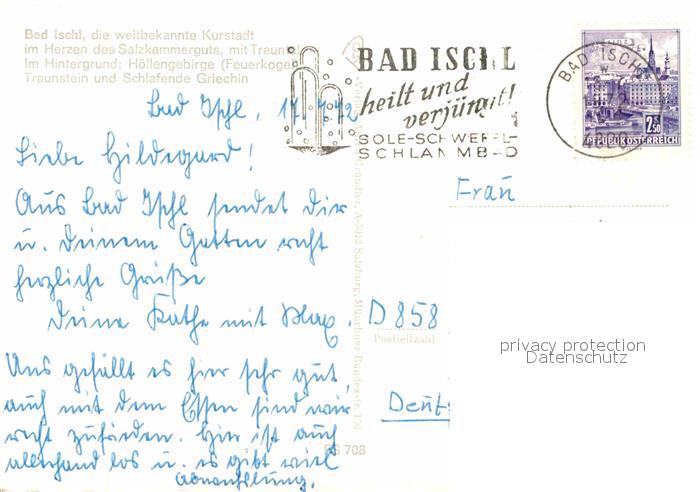 Bad Ischl, die weltbekannte Kurstadt
im Herzen des Salzkammerguts, mit Traun
Im Hintergrund: Höllengebirge (Feuerkogel
Traunstein und Schlafende Griechin
BAD ISCHL
heilt und
verjüngt!
SOLE-SCHWEFEL-
SCHLAMMBAD
BAD ISCHL
2.50
REPUBLIK ÖSTERREICH
Bad Ischl, 17.
Liebe Hildegard!
Aus Bad Ischl sendet Dir
u. Deinem Gatten recht
herzliche Grüße
Deine Käthe mit Max.
Uns gefällt es hier sehr gut,
auch mit dem Essen sind wir
recht zufrieden. Hier ist auch
allerhand los u. es gibt viel
Abwechslung.
A-5013 Salzburg, Münchner Bundesstr. 150
Frau
D 858
Postleitzahl
privacy protection
Datenschutz
Deut
708